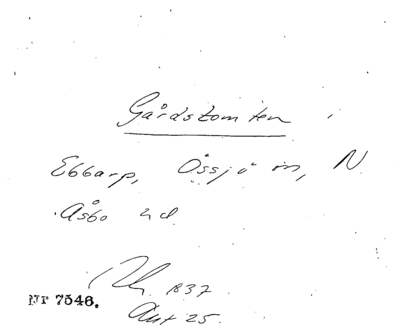 Gårdstomten
Ebbarp, Össjö sn, N.
Åsbo hd
1837
Nr 7546.
Akt 25.